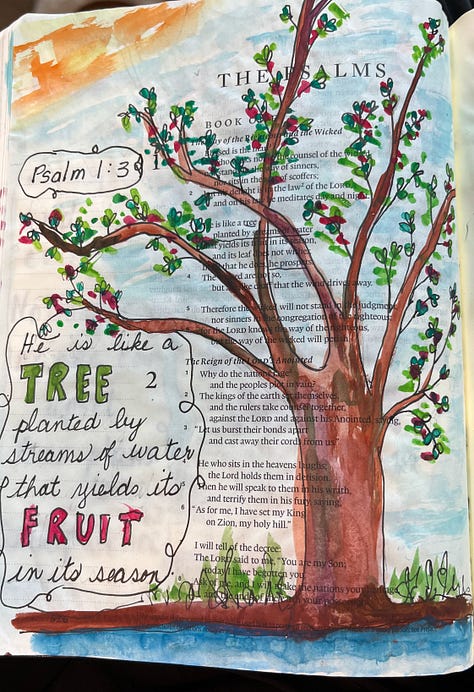 THE PSALMS
BOOK
Psalm 1:3
the Wicked
the counsel of the
way of sinners,
nor sits in the of scoffers;
2 the law² of the LORD,
and on his meditates day and
is like a tree
planted by of water
yields its in its season,
and its leaf does not
he does, he prospers.
4 The are not so,
but are like chaff that the wind drives away.
5 Therefore the wicked will not stand in the judgment,
nor sinners in the congregation of the righteous;
for the LORD knows the way of the righteous,
but the way of the wicked will
The Reign of the LORD's Anointed
He is like a
TREE
planted by
streams of water
that yields its
FRUIT
in its season.
2
1 Why do the nations rage
and the peoples plot in vain?
2 The kings of the earth set themselves,
and the rulers take counsel together,
against the LORD and against his Anointed, saying,
3 "Let us burst their bonds apart
and cast away their cords from us."
He who sits in the heavens laughs;
the Lord holds them in derision.
Then he will speak to them in his wrath,
and terrify them in his fury, saying,
6 "As for me, I have set my King
on Zion, my holy hill."
I will tell of the decree:
The LORD said to me, "You are my Son;
today I have begotten you.
Ask of me, and I will make the nations your heritage,
and the ends of the earth your